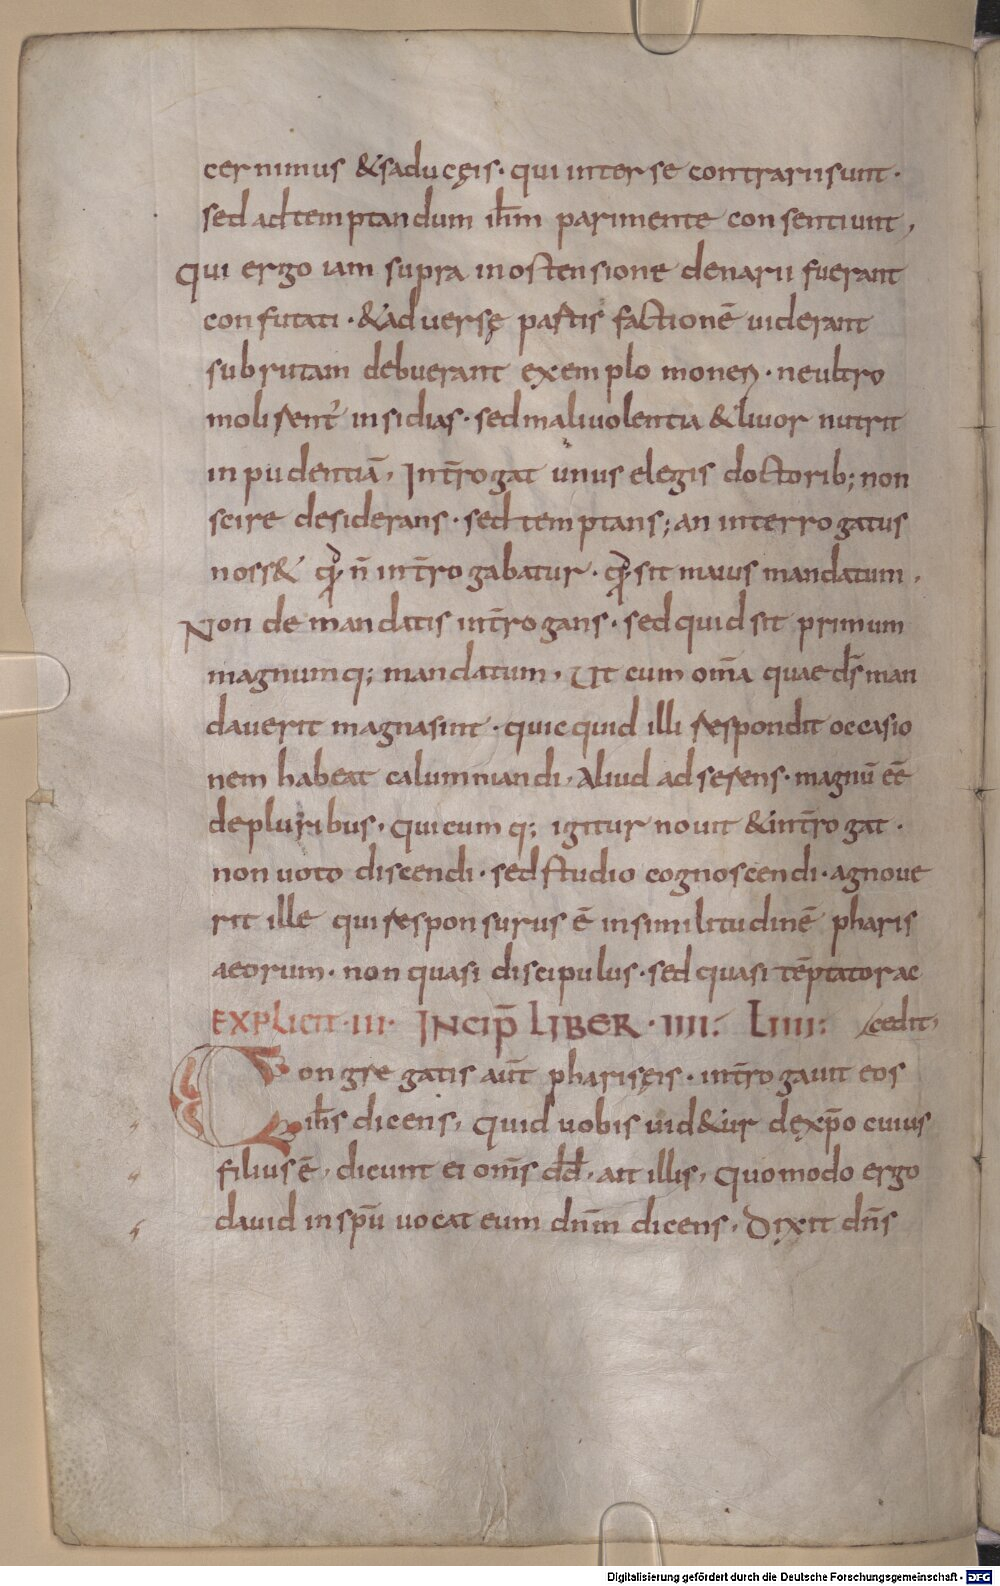 cernimus &saducęis· qui interse contrariisunt·
sed adtemptandum ih̄m parimente consentiunt,
Qui ergo iam supra inostensione denarii fuerant
confutati·&aduersę partis factionē uiderant
subrutam debuerant exemplo moneri· neultro
molirent᷑ insidias· sedmaliuolentia &liuor nutrit
inpudentiā, Int̄rogat unus elegis doctorib; non
scire desiderans· sed temptans; an interrogatus
noss& qđ n̄ int̄rogabatur· qđ sit maius mandatum,
Non de mandatis int̄rogans· sed quid sit primum
magnumq; mandatum, Ut cum om̄a quae dr̄ man
dauerit magnasint· quicquid illi respondit occasio
nem habeat calumniandi, aliud adserens· magnū eē
depluribus, quicumq; igitur nouit &int̄rogat·
non uoto discendi· sed studio cognoscendi· agnoue
rit ille qui responsurus ē insimilitudinē pharis
aeorum· non quasi discipulus· sed quasi tēptator ac
EXPLICIT·III· INCIP̄ LIBER·IIII: LIIII: /cedit,
Congregatis aūt pharisęis· int̄rogauit eos
ih̄s dicens, Quid uobis uid&ur dexp̄o cuius
filius ē, dicunt ei om̄s dd̄, ait illis, Quomodo ergo
dauid inspū uocat eum dn̄m dicens, Dixit dn̄s
Digitalisierung gefördert durch die Deutsche Forschungsgemeinschaft - DFG